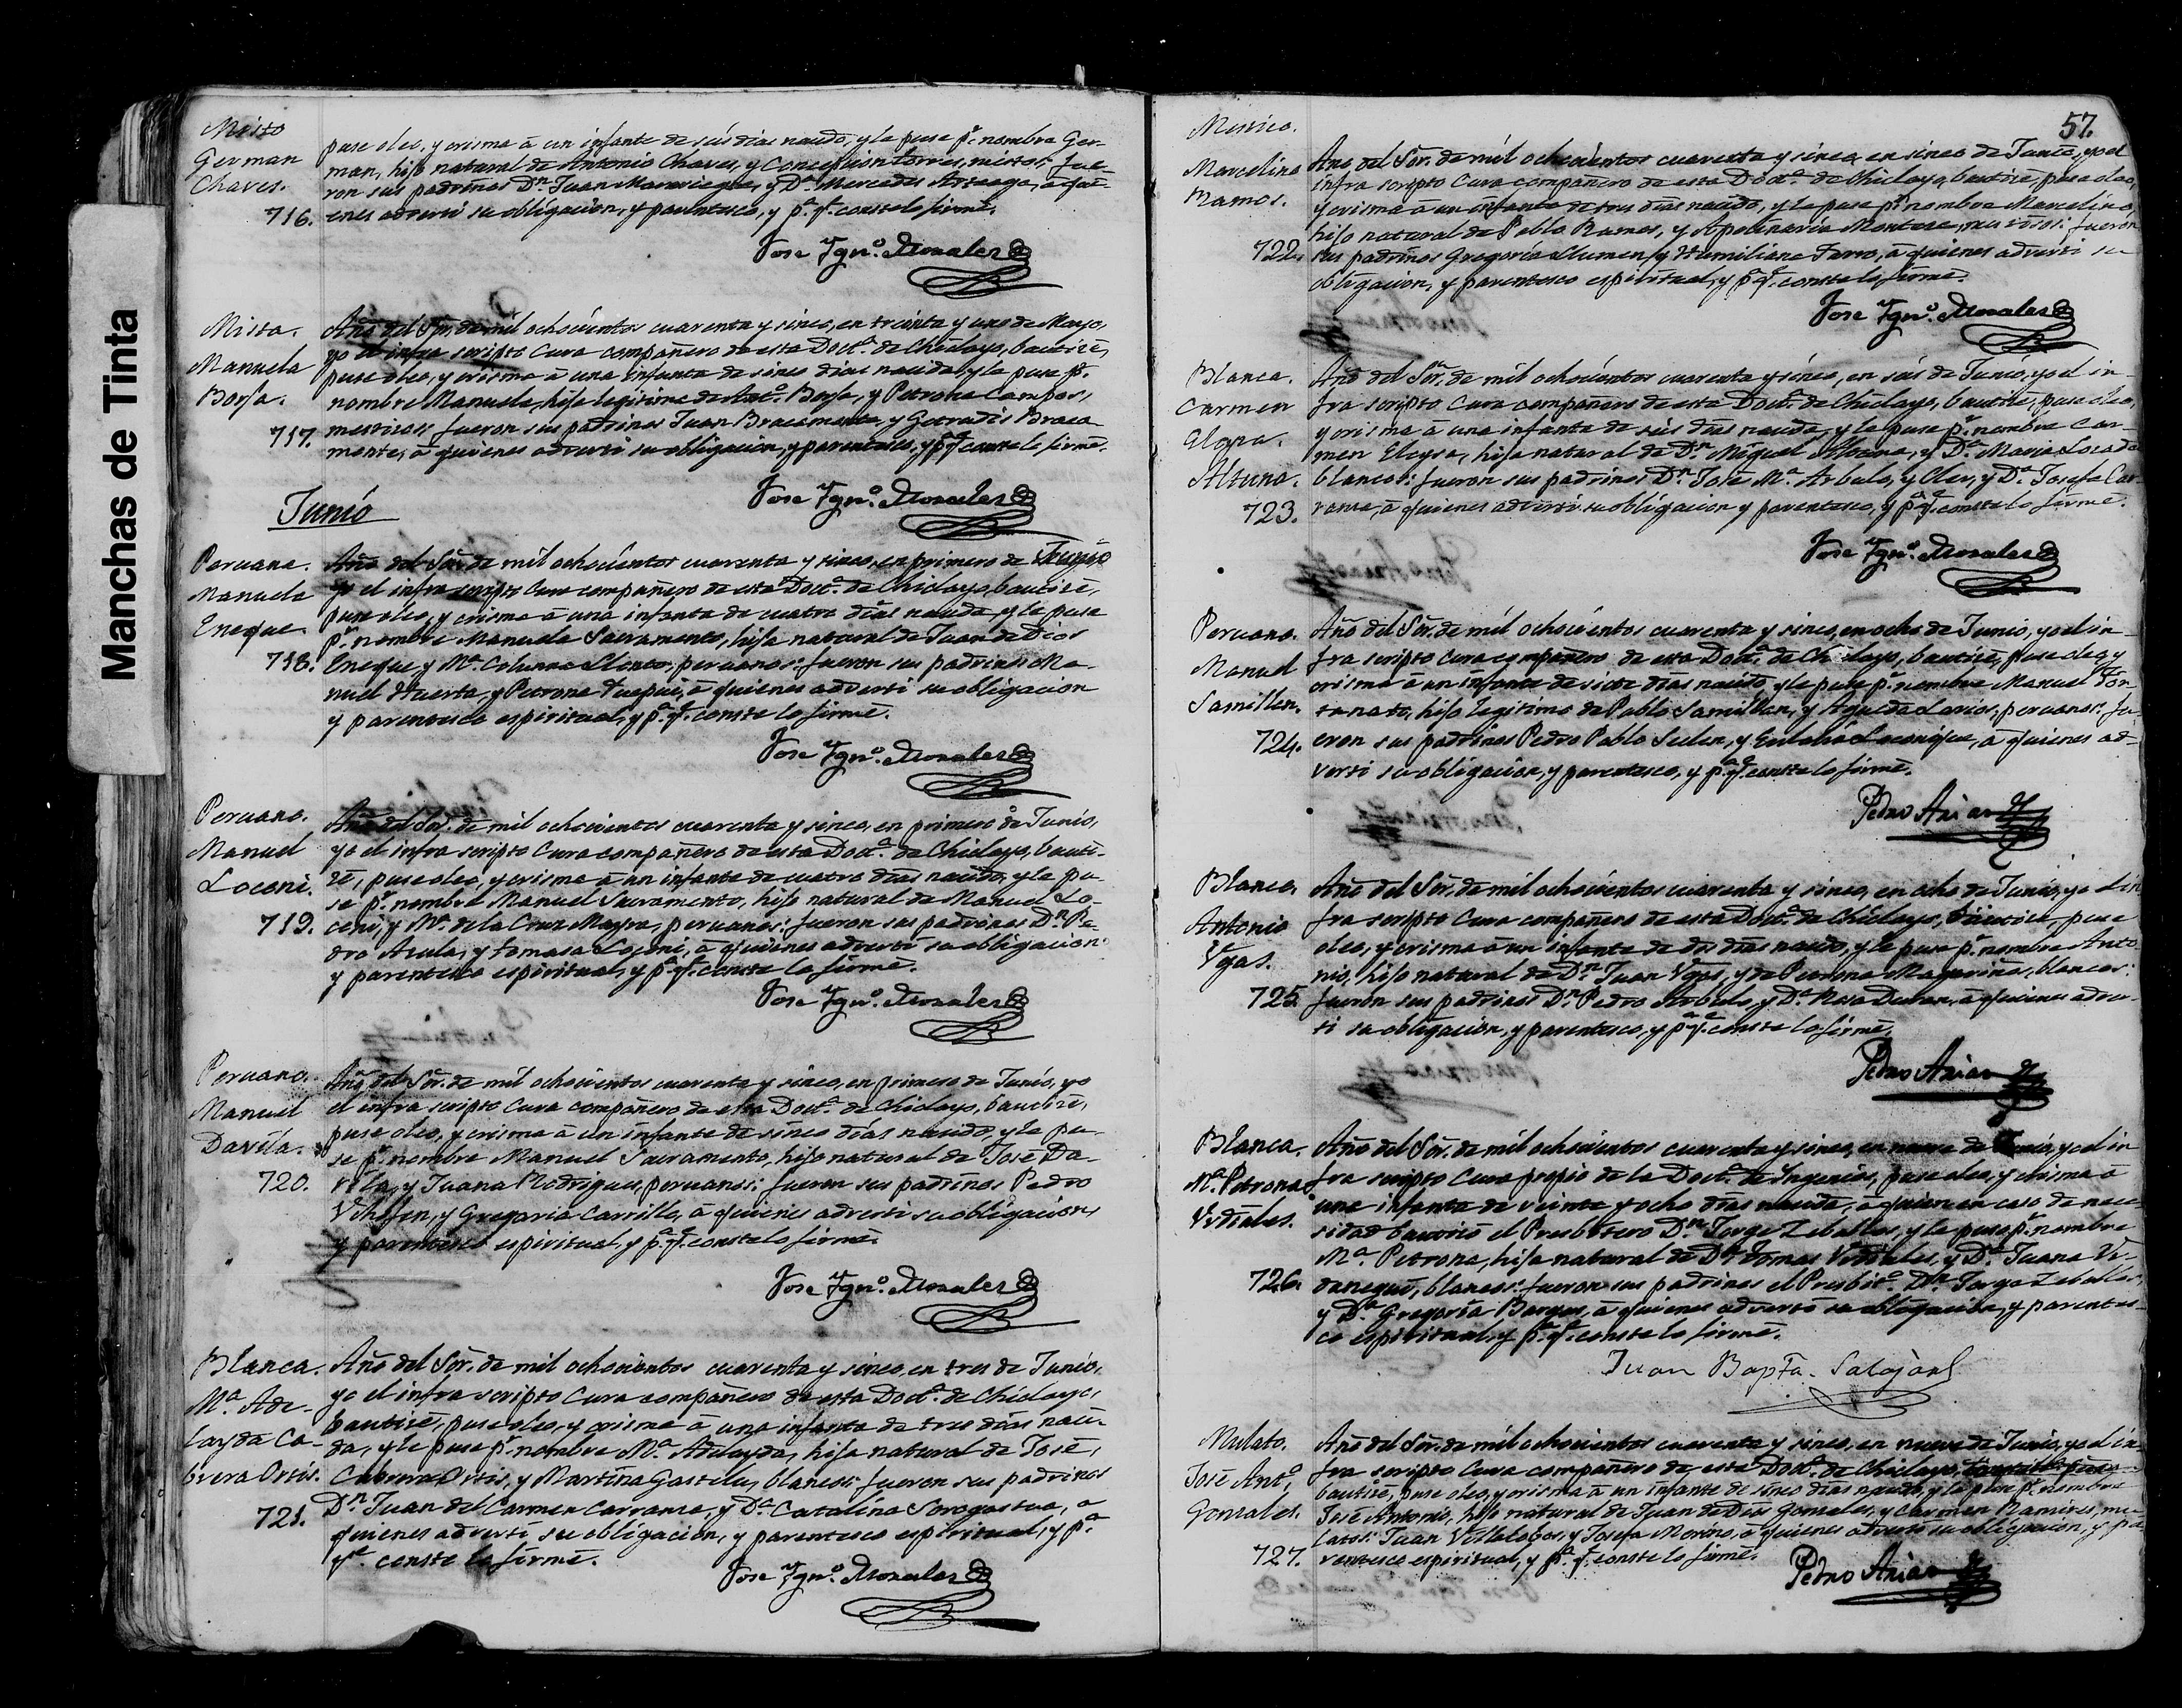 Manchas de Tinta
Misto
German
Chaves.
716.
puse oleo, y crisma â un infante de seis dias nacido, y le puse pr. nombre Ger-
man, hijo natural de Antonio Chaves, y Concepcion Torres, mistos: fue-
ron sus padrinos Dn. Juan y Da. Mercedes Arteaga, â qui-
enes advertí su obligacion, y parentesco, y pa. qe. conste lo firmé.
Jose Ygno. Morales
Mista.
Manuela
Borja.
717.
Año del Sõr. de mil ochocientos cuarenta y sinco, en treinta y uno de Mayo,
yo el infra scripto Cura compañero de esta Doct.a de Chiclayo, bautisé,
puse oleo, y crisma â una infanta de sinco dias nacida, y le puse pr.
nombre Manuela, hija legitima de Anto. Borja, y Petrona Campos,
mestisos: fueron sus padrinos Juan Bracamonte, y Getrudis Braca-
monte, â quienes advertí su obligacion, y parentesco, y pa. qe. conste lo firmé.
Jose Ygno. Morales
Junio
Peruana.
Manuela
Eneque.
718.
Año del Sõr. de mil ochocientos cuarenta y sinco, en primero de Junio
yo el infra scripto Cura compañero de esta Doct.a de Chiclayo, bautisé,
puse oleo, y crisma â una infanta de cuatro dias nacida, y le puse
pr. nombre Manuela Sacramento, hija natural de Juan de Dios
Eneque y Ma. Columna Llontop, peruanos: fueron sus padrinos Ma-
nuel Huerta, y Petrona â quienes advertí su obligacion
y parentesco espiritual, y pa. qe. conste lo firmé.
Jose Ygno. Morales
Peruano.
Manuel
Loconi.
719.
Año del Sõr. de mil ochocientos cuarenta y sinco, en primero de Junio,
yo el infra scripto Cura compañero de esta Doct.a de Chiclayo, bauti-
sé, puse oleo, y crisma â un infante de cuatro dias nacido, y le pu-
se pr. nombre Manuel Sacramento, hijo natural de Manuel Lo-
coni, y Ma. de la Cruz peruanos: fueron sus padrinos Dn. Pe-
dro y Tomasa Loconi, â quienes advertí su obligacion
y parentesco espiritual, y pa. qe. conste lo firmé.
Jose Ygno. Morales
Peruano.
Manuel
Davila.
720.
Año del Sõr. de mil ochocientos cuarenta y sinco, en primero de Junio, yo
el infra scripto Cura compañero de esta Doct.a de Chiclayo, bautisé,
puse oleo, y crisma â un infante de sinco dias nacido, y le pu-
se pr. nombre Manuel Sacramento, hijo natural de José Da-
vila, y Juana Rodrigues, peruanos: fueron sus padrinos Pedro
y Gregoria Carrillo, â quienes advertí su obligacion,
y parentesco espiritual, y pa. qe. conste lo firmé.
Jose Ygno. Morales
Blanca.
Ma. Ade-
layda Ca-
brera Ortis.
721.
Año del Sõr. de mil ochocientos cuarenta y sinco, en tres de Junio,
yo el infra scripto Cura compañero de esta Doct.a de Chiclayo,
bautisé, puse oleo, y crisma â una infanta de tres dias naci-
da, y le puse pr. nombre Ma. Adelayda, hija natural de José,
Cabrera Ortis, y Martina Gastelu, blancos: fueron sus padrinos
Dn. Juan del Carmen Carranza, y Da. Catalina Sorogastua, a
quienes advertí su obligacion, y parentesco espiritual, y pa.
qe. conste lo firmé.
Jose Ygno. Morales
57.
Mestico.
Marcelino
Ramos.
722.
Año del Sõr. de mil ochocientos cuarenta y sinco, en sinco de Junio, yo el
infra scripto Cura compañero de esta Doct.a de Chiclayo, bautisé, puse oleo,
y crisma â un infante de tres dias nacido, y le puse pr. nombre Marcelino,
hijo natural de Pablo Ramos, y Apolinaria mestisos: fueron
sus padrinos Gregorio Llumen, y Humiliana Farro, â quienes advertí su
obligacion, y parentesco espiritual, y pa. qe. conste lo firmé.
Jose Ygno. Morales
Blanca.
Carmen
Eloysa.
Altuna.
723.
Año del Sõr. de mil ochocientos cuarenta y sinco, en seis de Junio, yo el in-
fra scripto Cura compañero de esta Doct.a de Chiclayo, bautisé, puse oleo,
y crisma â una infanta de seis dias nacida, y le puse pr. nombre Car-
men Eloysa, hija natural de Dn. Miguel Altuna, y Da. Maria Losada
blancos: fueron sus padrinos Dn. José Ma. Arbulu, y Oles, y Da. Josefa Car-
ransa, â quienes advertí su obligacion y parentesco, y pa. qe. conste lo firmé.
Jose Ygno. Morales
Peruano.
Manuel
Samillan.
724.
Año del Sõr. de mil ochocientos cuarenta y sinco, en ocho de Junio, yo el in-
fra scripto Cura compañero de esta Doct.a de Chiclayo, bautisé, puse oleo, y
crisma â un infante de siete dias nacido, y le puse pr. nombre Manuel For-
tunato, hijo legitimo de Pablo Samillan, y Agueda Larios, peruanos: fu-
eron sus padrinos Pedro Pablo y Eulalia â quienes ad-
vertí su obligacion, y parentesco, y pa. qe. conste lo firmé.
Pedro Arias
Blanco.
Antonio
Vgas.
725.
Año del Sõr. de mil ochocientos cuarenta y sinco, en ocho de Junio, yo el in
fra scripto Cura compañero de esta Doct.a de Chiclayo, bautisé, puse
oleo, y crisma â un infante de dos dias nacido, y le puse pr. nombre Anto
nio, hijo natural de Dn. Juan Vgas, y de Petrona Magariña, blancos:
fueron sus padrinos Dn. Pedro Arbulu, y Da. Rosa Duran, â quienes adver-
tí su obligacion, y parentesco, y pa. qe. conste lo firmé.
Pedro Arias
Blanca.
Ma. Petrona
Vidales.
726.
Año del Sõr. de mil ochocientos cuarenta y sinco, en nueve de Junio, yo el in
fra scripto Cura propio de la Doct.a de Ingenios, puse oleo, y crisma â
una infanta de veinte y ocho dias nacida, â quien en caso de nece
sidad bautisó el Presbitero Dn. Jorge Zeballos, y le puse pr. nombre
Ma. Petrona, hija natural de Dn. Tomas Vidales, y Da. Juana Vi-
blancos: fueron sus padrinos el Presbito. Dn. Jorge Zeballos,
y Da. Gregoria Burgos, a quienes advertí su obligacion, y parentes-
co espiritual, y pa. qe. conste lo firmé.
Juan Bapta.
Mulato.
José Anto.
Gonzales.
727.
Año del Sõr. de mil ochocientos cuarenta y sinco, en nueve de Junio, yo el in-
fra scripto Cura compañero de esta Doct.a de Chiclayo,
bautisé, puse oleo, y crisma â un infante de sinco dias nacido, y le puse pr. nombre
José Antonio, hijo natural de Juan de Dios Gonzales, y Carmen Ramires, mu-
latos: Juan Villalobos, y Josefa Moreno, a quienes advertí su obligacion, y pa
rentesco espiritual, y pa. qe. conste lo firmé.
Pedro Arias